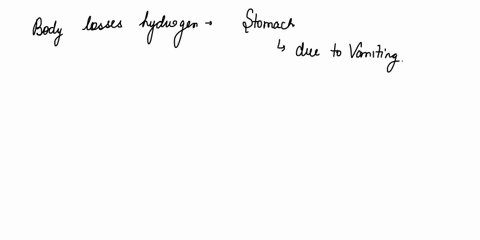 Body losses hydrogen → Stomach
↳ due to Vomiting.